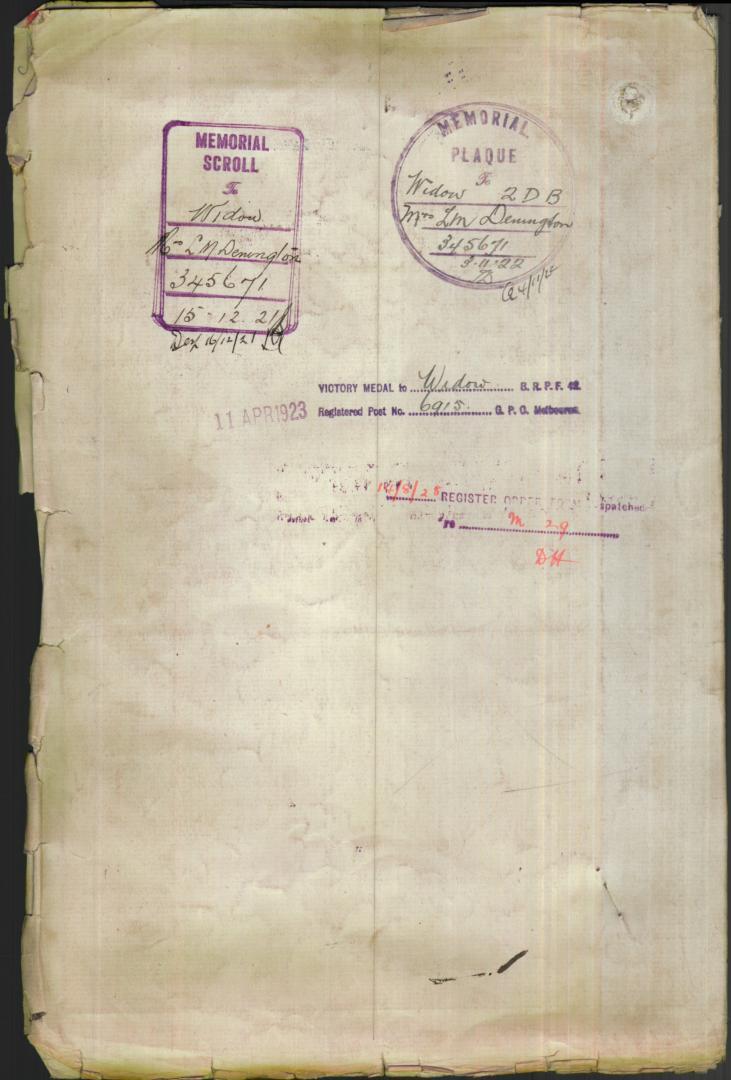 MEMORIAL
SCROLL
To
Widow
Mrs L M Denington
345671
15-12-21
Des 16/12/21
MEMORIAL
PLAQUE
To
Widow 2DB
Mrs LM Denington
345671
3-11-22
VICTORY MEDAL to Widow B. R. P. F. 42.
11 APR 1923
Registered Post No. 6915. G. P. O. Melbourne.
14/8/28 REGISTER
spatched
re M 29
DH